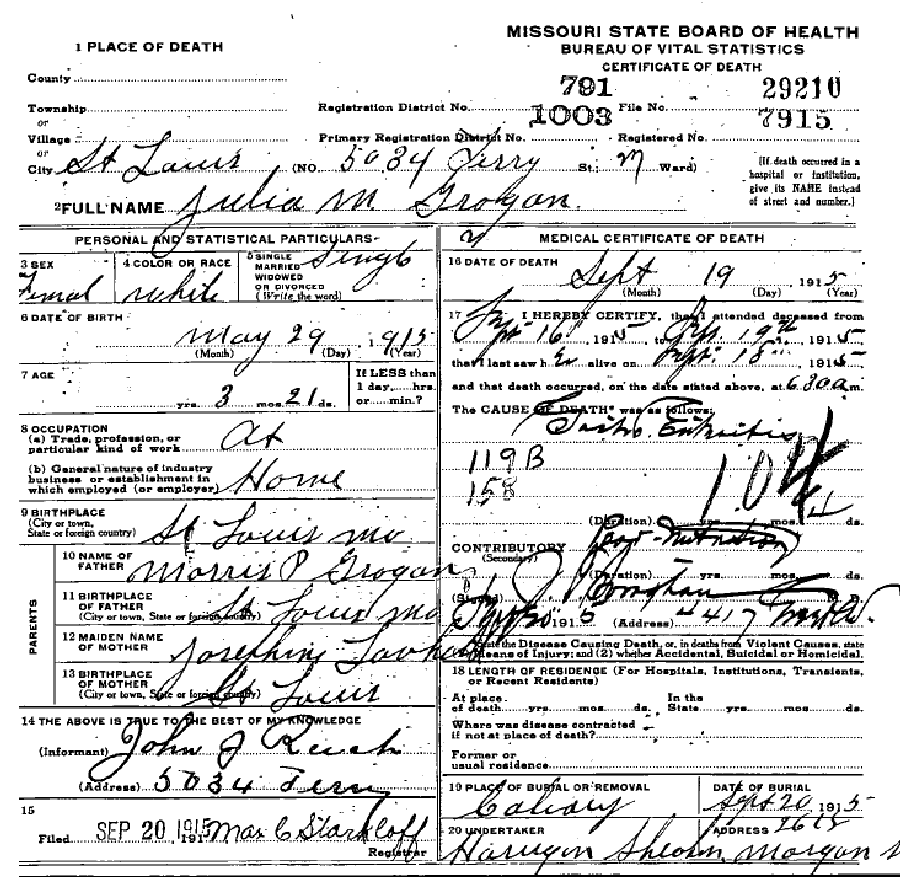 MISSOURI STATE BOARD OF HEALTH
BUREAU OF VITAL STATISTICS
CERTIFICATE OF DEATH
1 PLACE OF DEATH
County
Township
or
Village
or
City St Louis (NO. 5034 Terry St; Ward)
Registration District No. 791 File No. 29210
Primary Registration District No. 1003 Registered No. 7915
[If death occurred in a
hospital or institution,
give its NAME instead
of street and number.]
2 FULL NAME Julia M. Grogan.
PERSONAL AND STATISTICAL PARTICULARS
3 SEX
Femal
4 COLOR OR RACE
White
5 SINGLE
MARRIED
WIDOWED
OR DIVORCED
(Write the word)
Single
6 DATE OF BIRTH
May 29 1915
(Month) (Day) (Year)
7 AGE
yrs. 3 mos. 21 ds.
If LESS than
1 day, hrs.
or min.?
8 OCCUPATION
(a) Trade, profession, or
particular kind of work At
(b) General nature of industry
business or establishment in
which employed (or employer) Home
9 BIRTHPLACE
(City or town,
State or foreign country) St Louis Mo
PARENTS
10 NAME OF
FATHER Morris P Grogan
11 BIRTHPLACE
OF FATHER
(City or town, State or foreign country) St Louis Mo
12 MAIDEN NAME
OF MOTHER Josephine
13 BIRTHPLACE
OF MOTHER
(City or town, State or foreign country) St Louis
14 THE ABOVE IS TRUE TO THE BEST OF MY KNOWLEDGE
(Informant) John J
(Address) 5034 Terry
15
Filed SEP 20 1915 191 Max C Starkloff
Registrar
MEDICAL CERTIFICATE OF DEATH
16 DATE OF DEATH
Sept 19 1915
(Month) (Day) (Year)
17 I HEREBY CERTIFY, that I attended deceased from
Sept 16 1915 to Sept 19th 1915
that I last saw h er alive on Sept 18 1915
and that death occurred, on the date stated above, at 6 30 a m.
The CAUSE OF DEATH* was as follows:
Gastro Enteritis
119B
158
104
(Duration) yrs. mos. ds.
CONTRIBUTORY Poor Nutrition
(Secondary)
(Duration) yrs. mos. ds.
(Signed)
1915 (Address) 4417
*State the Disease Causing Death, or, in deaths from Violent Causes, state
Means of Injury; and (2) whether Accidental, Suicidal or Homicidal.
18 LENGTH OF RESIDENCE (For Hospitals, Institutions, Transients,
or Recent Residents)
At place
of death yrs. mos. ds.
In the
State yrs. mos. ds.
Where was disease contracted
if not at place of death?
Former or
usual residence
19 PLACE OF BURIAL OR REMOVAL
Calvary
DATE OF BURIAL
Sept 20 1915
20 UNDERTAKER
ADDRESS
Morgan